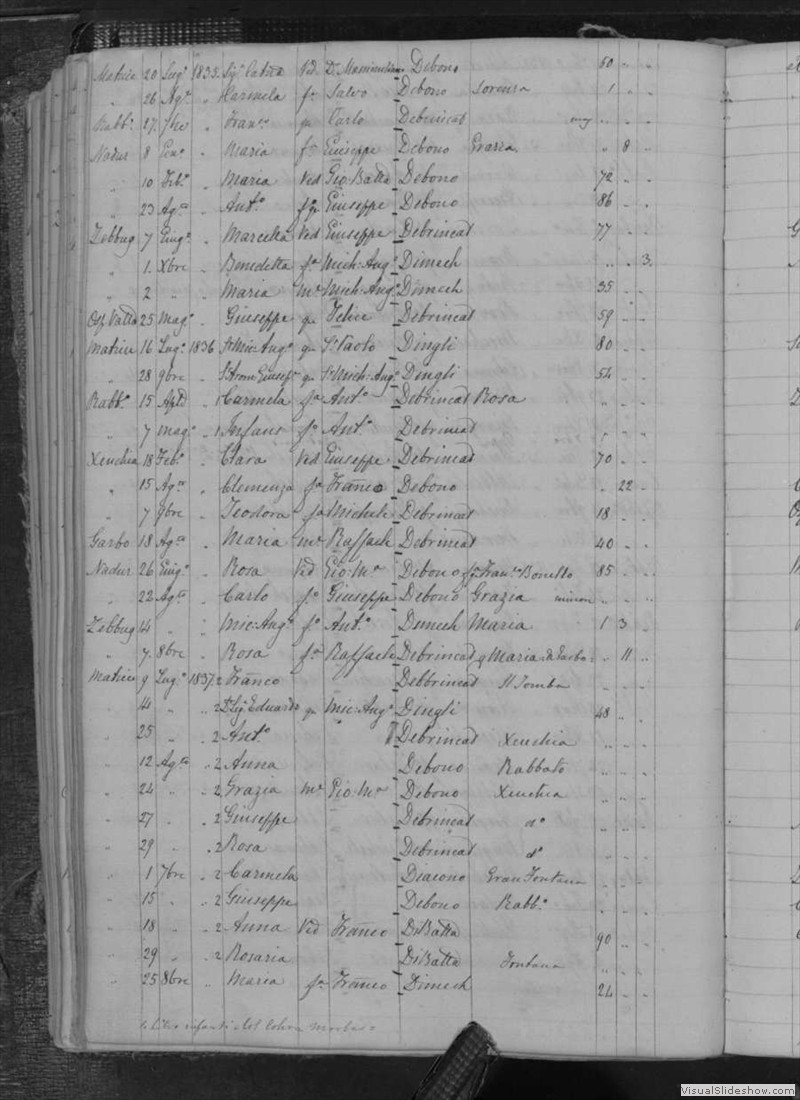 Matrice 20 Lug.o 1835. Sig.a Vid. Dr. Massimiliano Debono 60 " "
" 26 Ag.o " Carmela f.a Salvo Debono Lorenza 1 " "
Rabb.o 27 7bre " Fran.co q.m Carlo Debrincat " "
Nadur 8 Gen.o " Maria f.a Giuseppe Debono Grazia " 8 "
" 10 Feb.o " Maria Vid Gio Batta Debono 72 " "
" 23 Ag.to " Ant.o Giuseppe Debono 86 " "
Zebbug 7 Giug.o " Marcella Vid Giuseppe Debrincat 77 " "
" 1. Xbre " Benedetta f.a Mich: Ang.o Dimech " " 3
" 2 " " Maria m.e Mich: Ang.o Dimech 35 " "
25 Mag.o " Giuseppe q.m Felice Debrincat 59 " "
Matrice 16 Lug.o 1836 Mic: Ang.o q.m Paolo Dingli 80 " "
" 28 9bre " q.m Mich: Ang.o Dingli 54 " "
Rabb.o 15 " 1 Carmela f.a Ant.o Debrincat Rosa " " "
" 7 mag.o " 1 Infans f.o Ant.o Debrincat " " "
Xeuchia 18 Feb.o " Clara Vid Giuseppe Debrincat 70 " "
" 15 Ag.to " Clemenza f.a Franco Debono " 22 "
" 7 9bre " Teodora f.a Michele Debrincat 18 " "
Garbo 18 Ag.to " Maria m.e Raffaele Debrincat 40 " "
Nadur 26 Giug.o " Rosa Vid Gio: M.a Debono Fran.co Bonello 85 " "
" 22 Ag.to " Carlo f.o Giuseppe Debono Grazia minore " " "
Zebbug 14 " " Mic: Ang.o f.o Ant.o Dimech Maria 1 3 "
" 7 8bre " Rosa f.a Raffaele Debrincat q Maria di Garbo " 11 "
Matrice 9 Lug.o 1837 2 Franco Debbrincat
" 4 " " 2 Eduardo q.m Mic: Ang.o Dingli 48 " "
" 25 " " 2 Ant.o Debrincat Xeuchia " " "
" 12 Ag.to " 2 Anna Debono Rabbato " " "
" 24 " " 2 Grazia m.e Gio: M.a Debono Xeuchia " " "
" 27 " " 2 Giuseppe Debrincat d.o " " "
" 29 " " 2 Rosa Debrincat d.o " " "
" 1 7bre " 2 Carmela Diacono Gran Fontana " " "
" 15 " " 2 Giuseppe Debono Rabb.o " " "
" 18 " " 2 Anna Vid Franco DiBatta 90 " "
" 29 " " 2 Rosaria DiBatta Fontana " " "
" 25 8bre " Maria f.a Franco Dimech 24 " "
VisualSlideshow.com